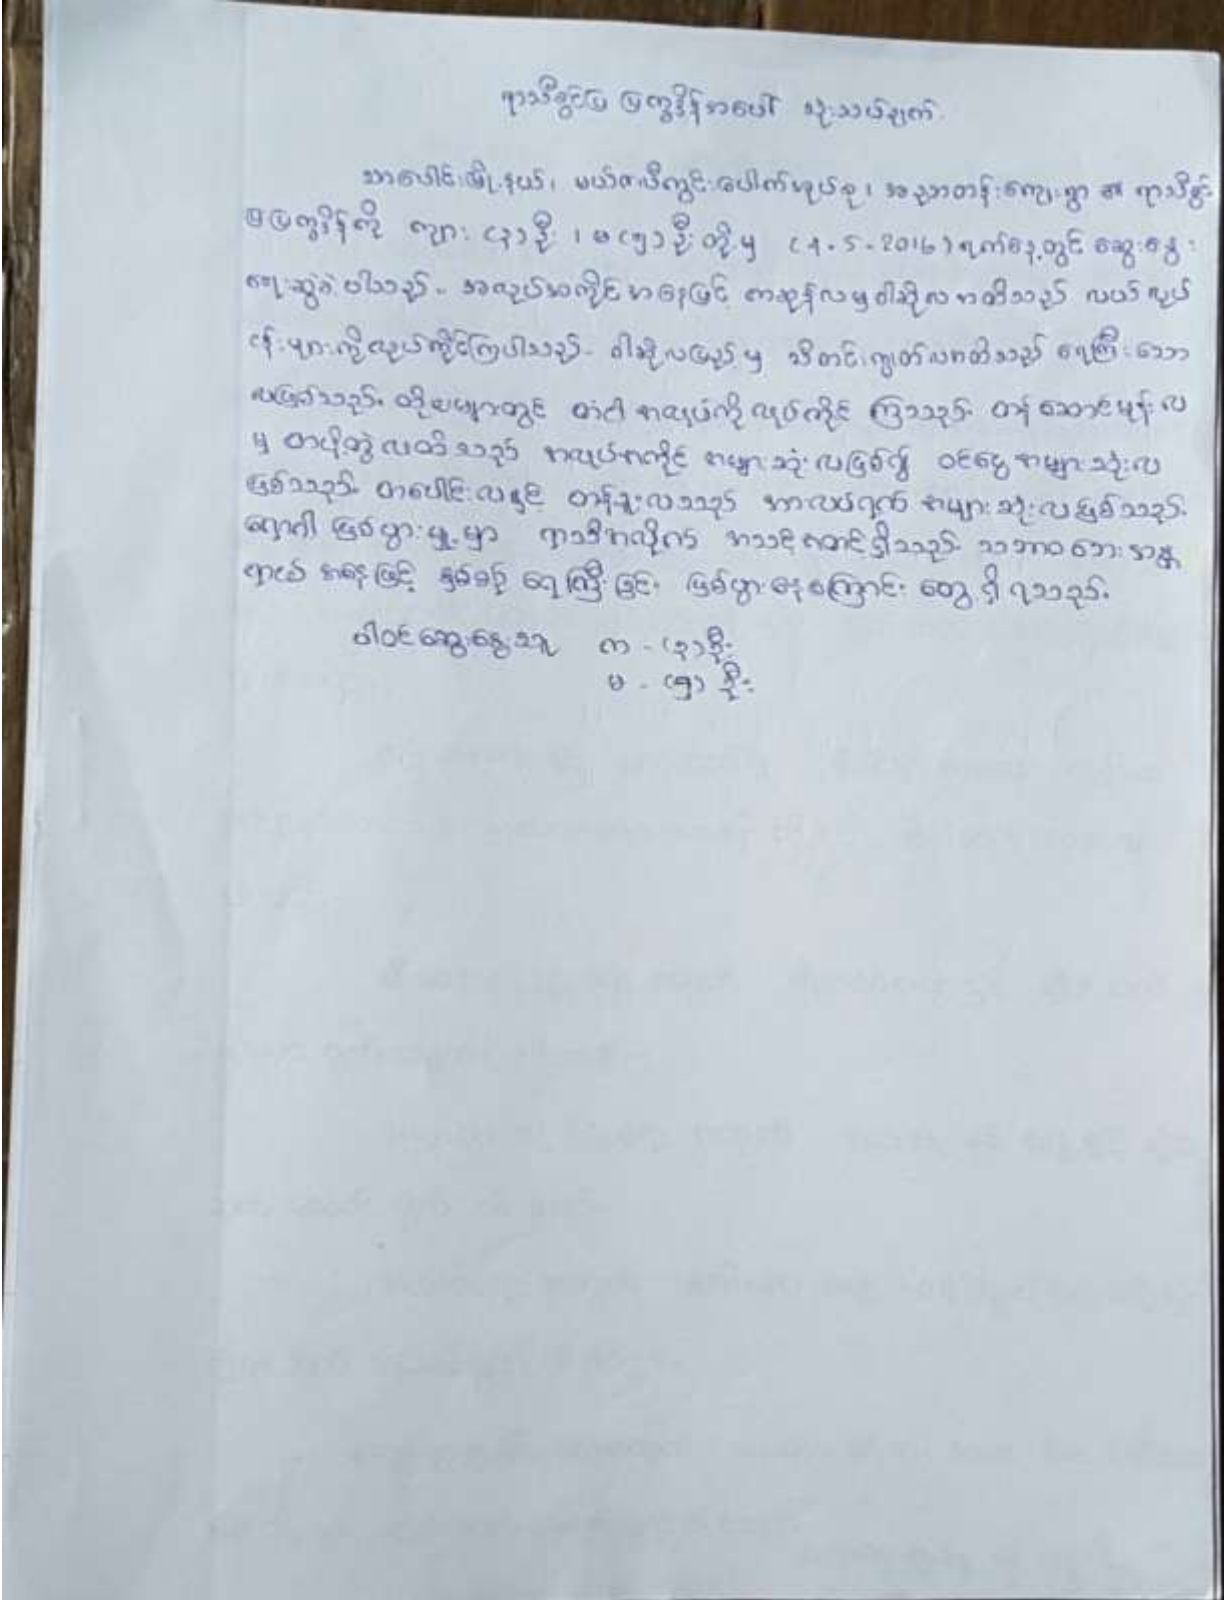 ရာသီခွင်ပြ ပြက္ခဒိန်အပေါ် သုံးသပ်ချက်
သာပေါင်းမြို့နယ်၊ မယ်ဇလီကွင်းပေါက်အုပ်စု၊ အညာတန်းကျေးရွာ ၏ ရာသီခွင်
ပြ ပြက္ခဒိန်ကို ကျား (၃) ဦး ၊ မ (၅) ဦး တို့မှ (9.5.2016) ရက်နေ့တွင် ဆွေးနွေး
ရေးဆွဲခဲ့ပါသည်။ အလုပ်အကိုင်အနေဖြင့် ကဆုန်လမှ ဝါဆိုလအထိသည် လယ်လုပ်
ငန်းများကိုလုပ်ကိုင်ကြပါသည်။ ဝါဆိုလပြည့်မှ သီတင်းကျွတ်လအထိသည် ရေကြီးသော
လဖြစ်သည်။ ထိုလများတွင် တံငါ အလုပ်ကို လုပ်ကိုင် ကြသည်။ တန်ဆောင်မုန်းလ
မှ တပို့တွဲလထိသည် အလုပ်အကိုင် အများဆုံးလဖြစ်၍ ဝင်ငွေအများဆုံးလ
ဖြစ်သည်။ တပေါင်းလနှင့် တန်ခူးလသည် အားလပ်ရက် အများဆုံးလဖြစ်သည်။
ရောဂါ ဖြစ်ပွားမှုမှာ ရာသီအလိုက် အသင့်အတင့်ရှိသည်။ သဘာဝဘေးအန္တ
ရာယ် အနေဖြင့် နှစ်စဉ် ရေကြီးခြင်း ဖြစ်ပွားနေကြောင်း တွေ့ရှိရသည်။
ပါဝင်ဆွေးနွေးသူ က - (၃) ဦး
မ - (၅) ဦး